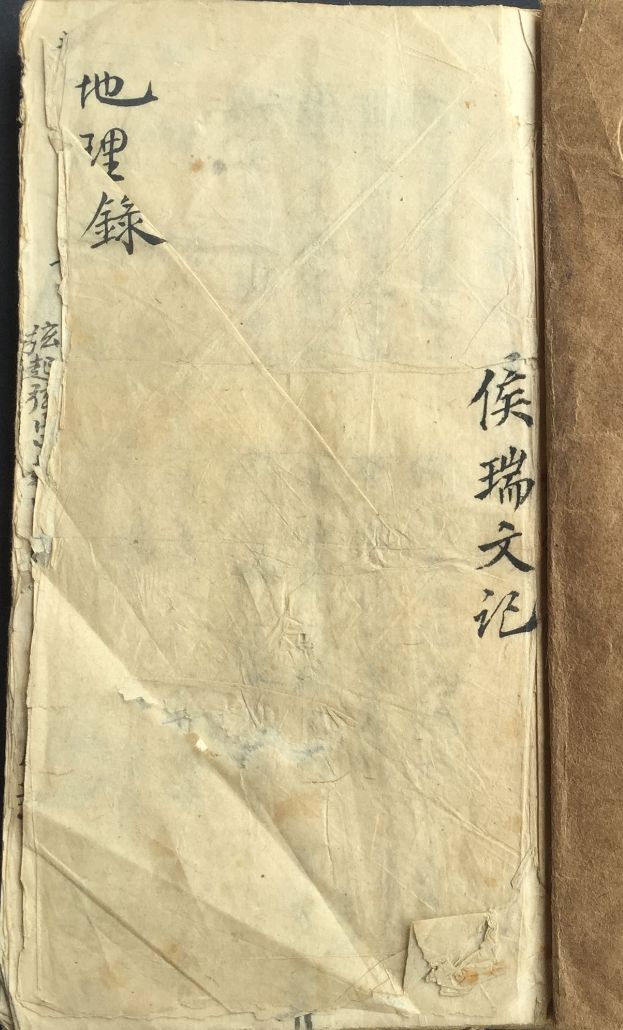 侯瑞文记
地理錄
弦起